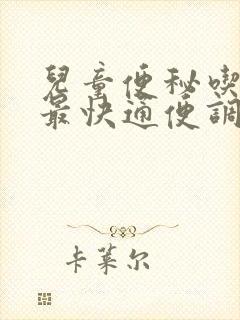 兒童便秘喫
最快通便調
卡萊尔